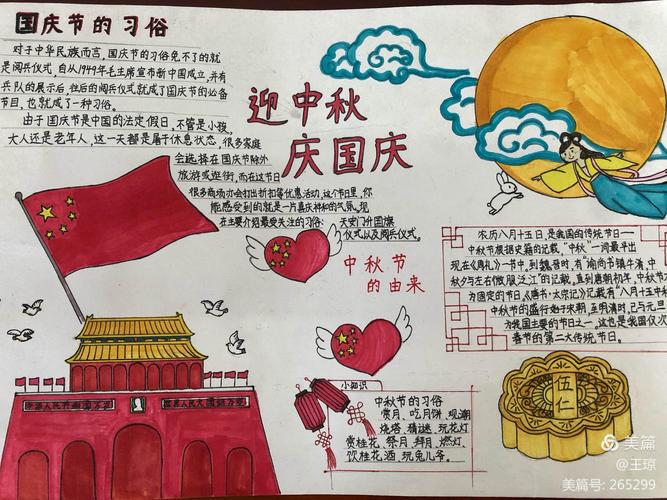 国庆节的习俗
对于中华民族而言,国庆节的习俗免不了的就
是阅兵仪式,自从1949年毛主席宣布新中国成立,并有
兵队的展示后,往后的阅兵仪式就成了国庆节的必备
节目,也就成了一种习俗。
由于国庆节是中国的法定假日,不管是小孩,
大人还是老年人,这一天都是属于休息状态,很多家庭
会选择在国庆节除外
旅游或逛街,而在这节日
很多商场亦会打出折扣等优惠活动,这个节日里,你
能感受到的就是一片喜庆祥和的气氛。现
在主要介绍最受关注的习俗:天安门升国旗
仪式以及阅兵仪式。
迎中秋
庆国庆
中秋节
的由来
农历八月十五日,是我国的传统节日—
中秋节根据史籍的记载,“中秋”一词最早出
现在《周礼》一书中,到魏晋时,有“谕尚书镇牛渚,中
秋夕与左右微服泛江”的记载,直到唐朝初年,中秋节
为固定的节日,《唐书·太宗记》记载有“八月十五中秋
中秋节的盛行始于宋朝,至明清时,已与元旦
为我国主要的节日之一,这也是我国仅次
春节的第二大传统节日。
小知识
中秋节的习俗
赏月、吃月饼、观潮
烧塔、猜谜、玩花灯
赏桂花、祭月、拜月、燃灯、
饮桂花酒、玩兔儿爷。
伍
仁
美篇
@王琼
美篇号:265299